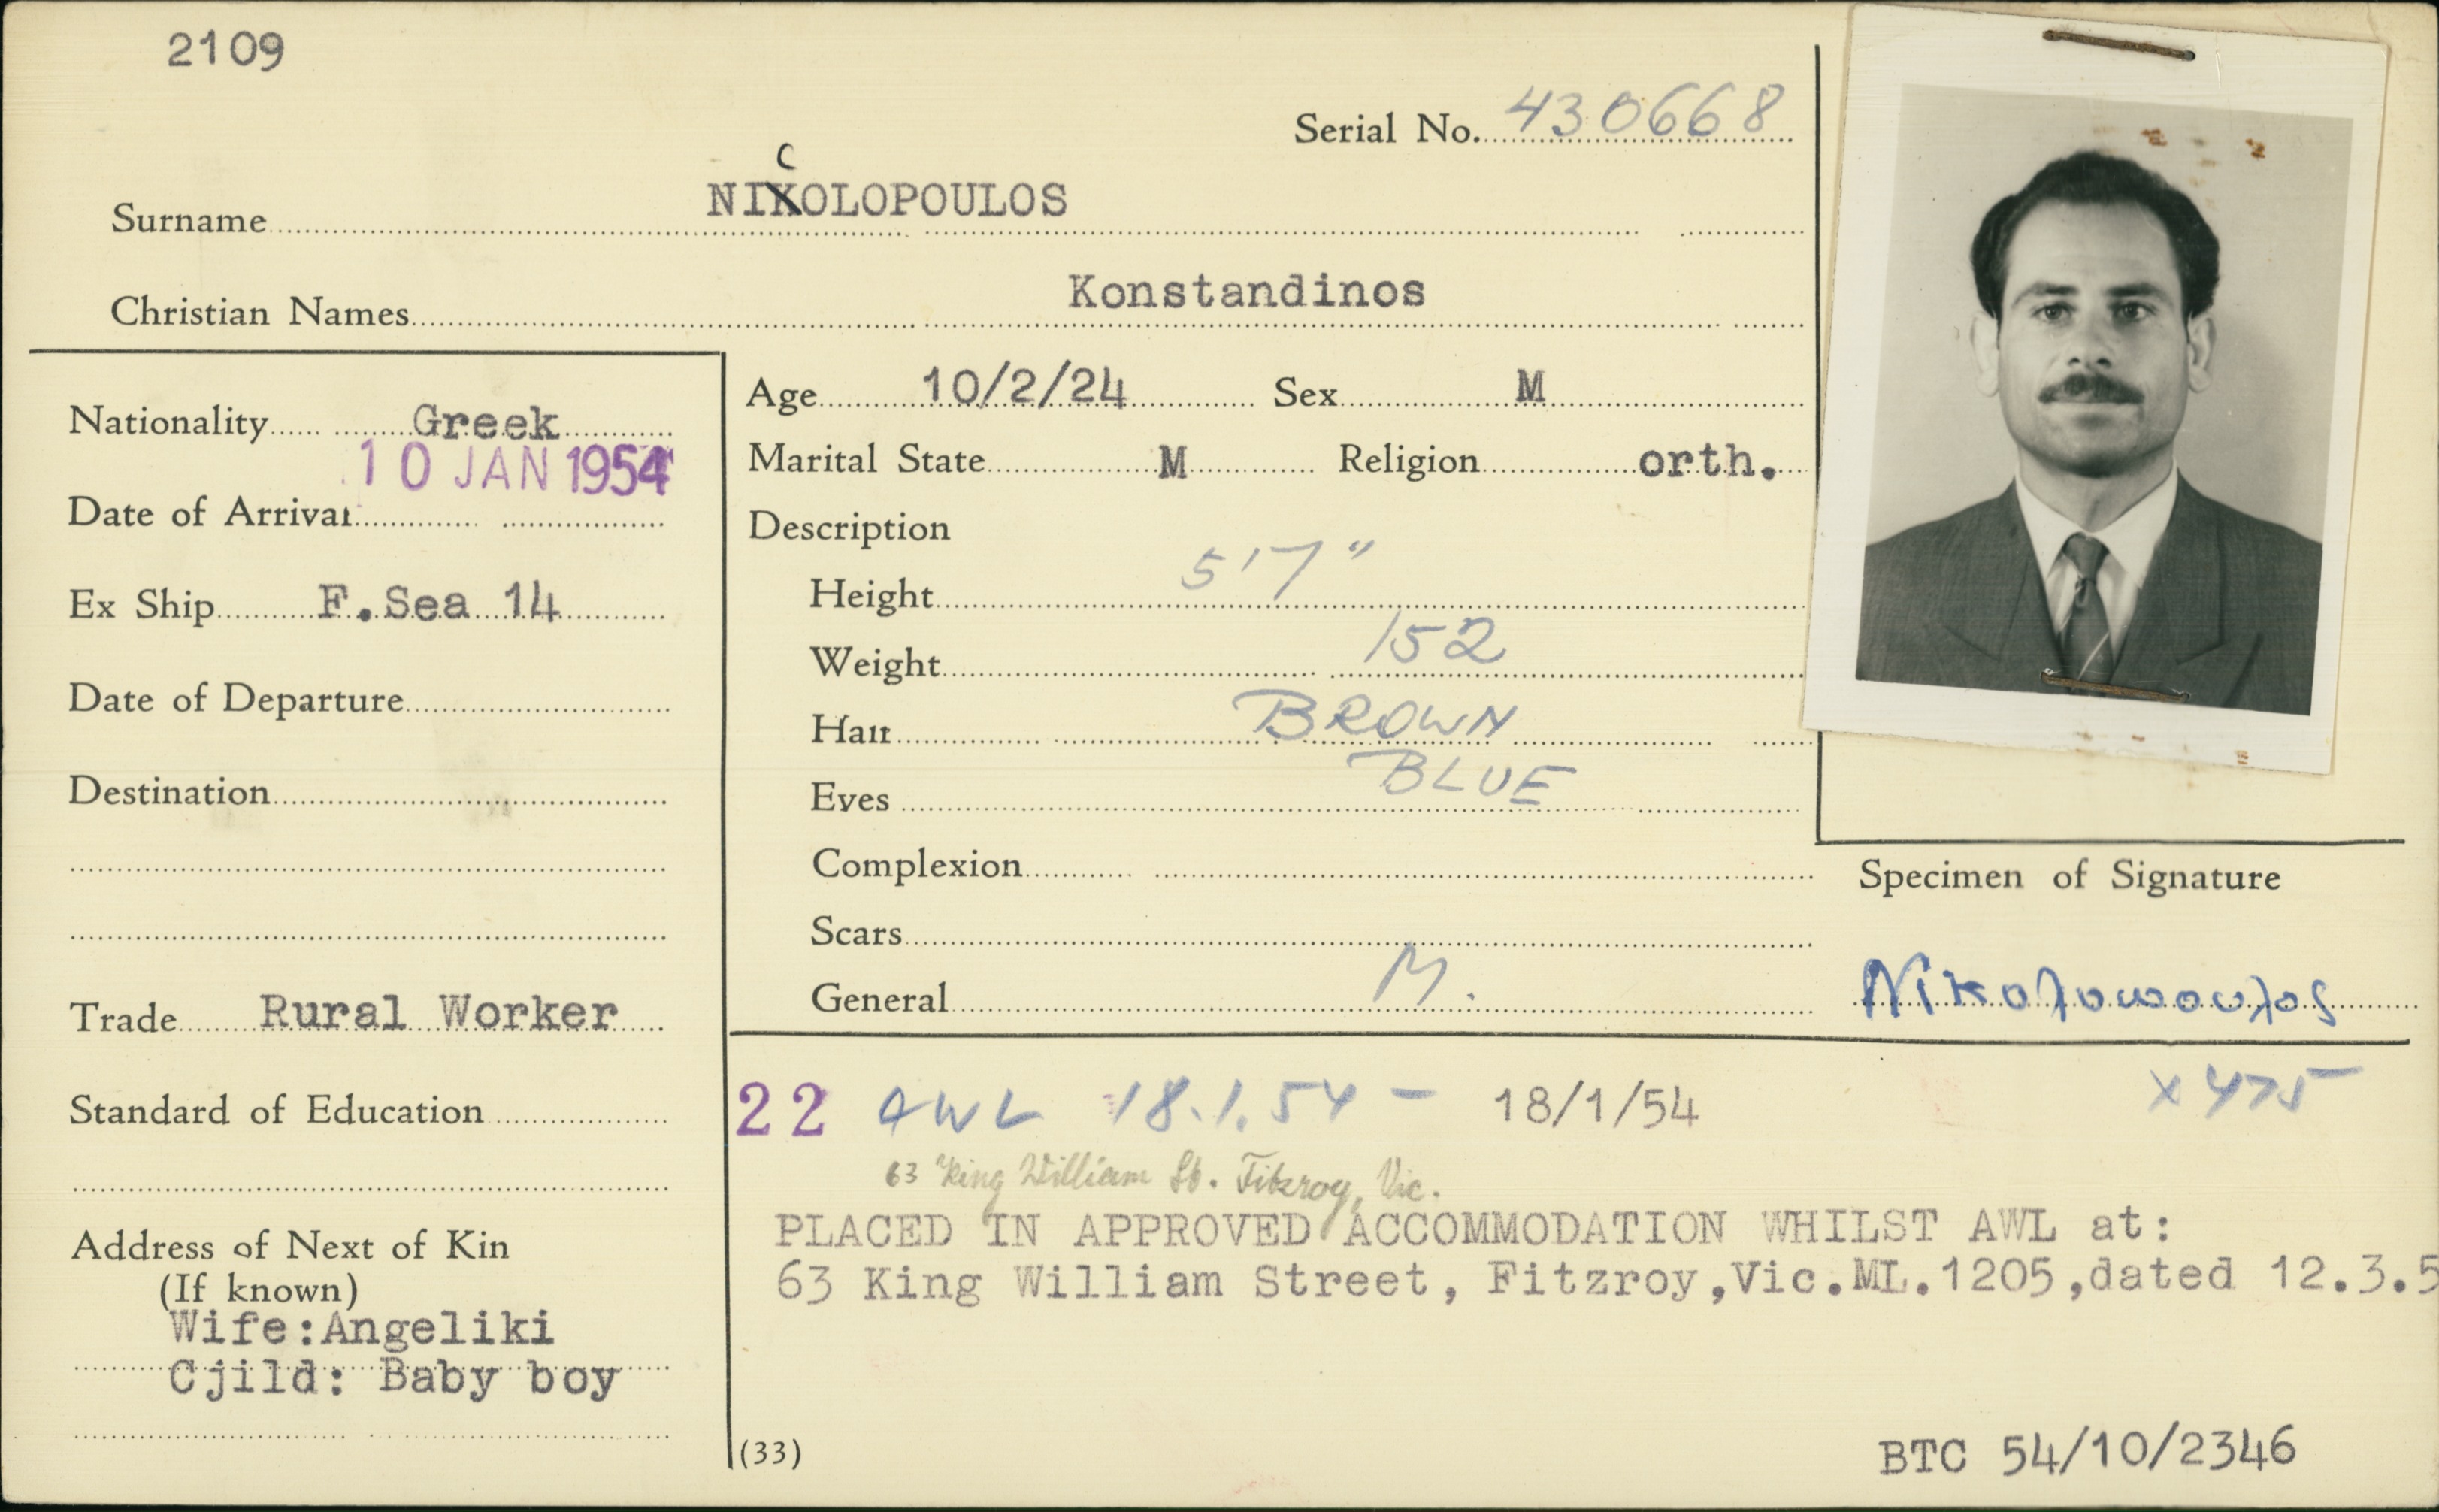 2109
Serial No. 430668
C
Surname NIKOLOPOULOS
Christian Names Konstandinos
Nationality Greek
10 JAN 1954
Date of Arrival
Ex Ship F.Sea 14
Date of Departure
Destination
Trade Rural Worker
Standard of Education
Address of Next of Kin
(If known)
Wife:Angeliki
Cjild: Baby boy
Age 10/2/24 Sex M
Marital State M Religion orth.
Description
Height 5'7"
Weight 152
Hair BROWN
Eyes BLUE
Complexion
Scars
General M.
Specimen of Signature
Νικολοπουλος
22 AWL 18.1.54 - 18/1/54 X475
63 King William St. Fitzroy, Vic.
PLACED IN APPROVED ACCOMMODATION WHILST AWL at:
63 King William Street, Fitzroy,Vic.ML.1205,dated 12.3.5
(33)
BTC 54/10/2346